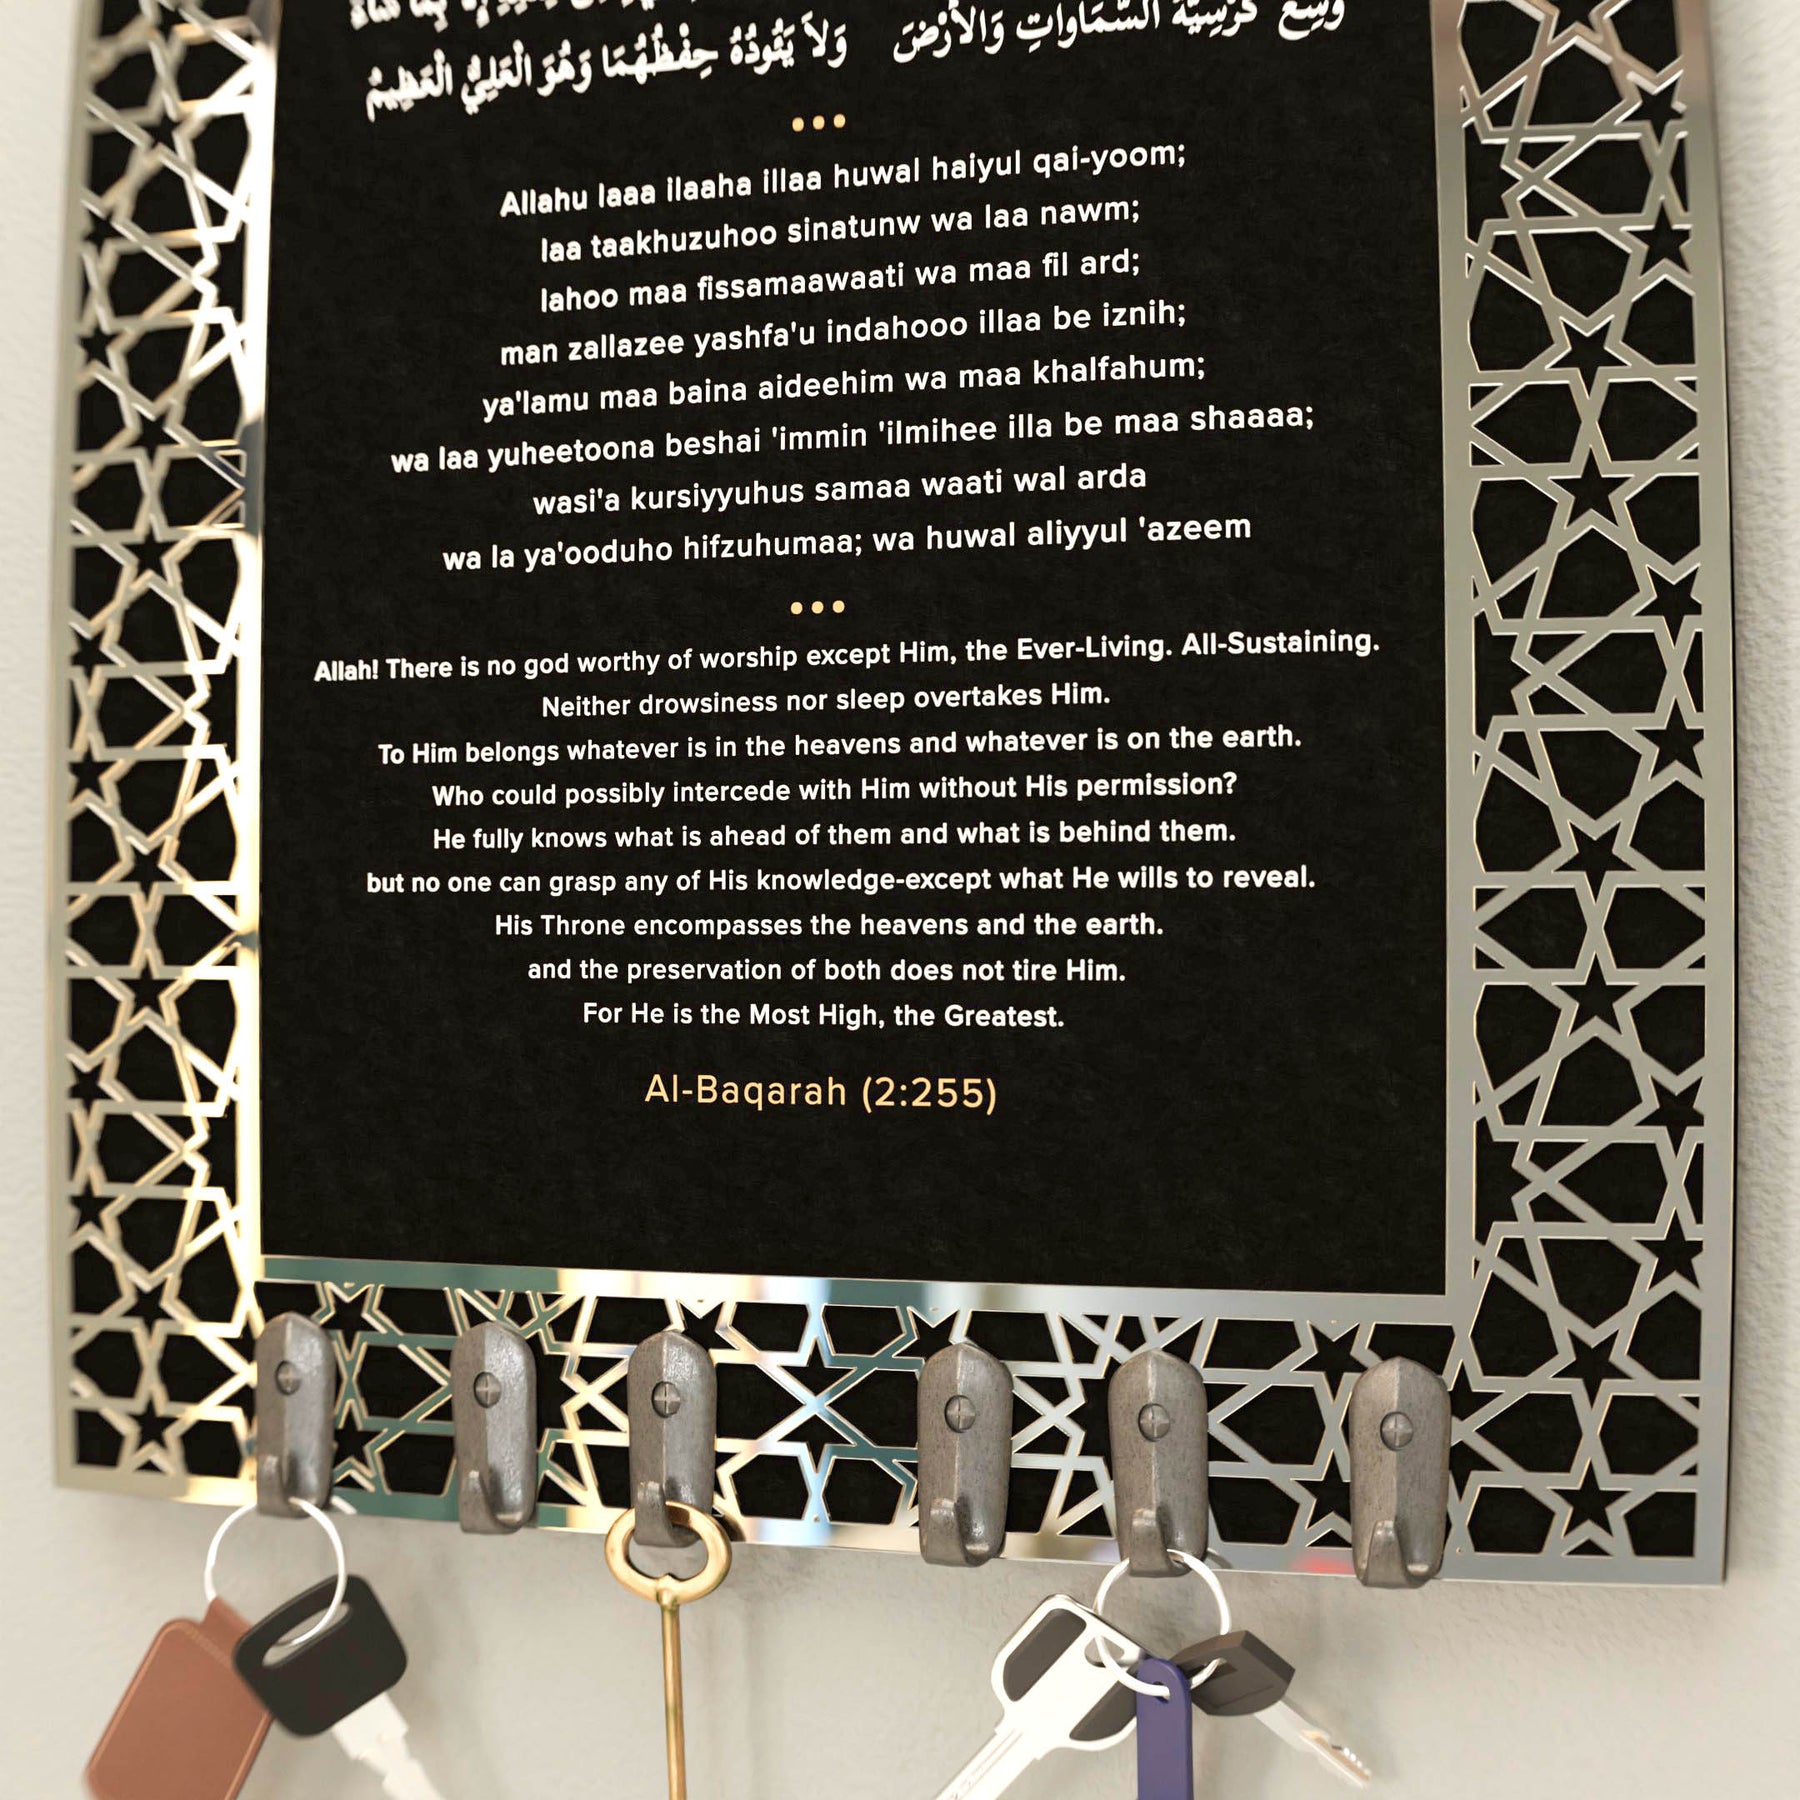 وَسِعَ كُرْسِيُّهُ السَّمَاوَاتِ وَالأَرْضَ وَلاَ يَؤُودُهُ حِفْظُهُمَا وَهُوَ الْعَلِيُّ الْعَظِيمُ
Allahu laaa ilaaha illaa huwal haiyul qai-yoom;
laa taakhuzuhoo sinatunw wa laa nawm;
lahoo maa fissamaawaati wa maa fil ard;
man zallazee yashfa'u indahooo illaa be iznih;
ya'lamu maa baina aideehim wa maa khalfahum;
wa laa yuheetoona beshai 'immin 'ilmihee illa be maa shaaaa;
wasi'a kursiyyuhus samaa waati wal arda
wa la ya'ooduho hifzuhumaa; wa huwal aliyyul 'azeem
Allah! There is no god worthy of worship except Him, the Ever-Living. All-Sustaining.
Neither drowsiness nor sleep overtakes Him.
To Him belongs whatever is in the heavens and whatever is on the earth.
Who could possibly intercede with Him without His permission?
He fully knows what is ahead of them and what is behind them.
but no one can grasp any of His knowledge-except what He wills to reveal.
His Throne encompasses the heavens and the earth.
and the preservation of both does not tire Him.
For He is the Most High, the Greatest.
Al-Baqarah (2:255)